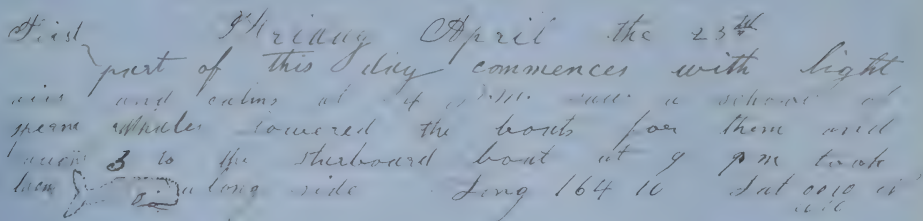 First Friday April the 23rd
part of this day commences with light
airs and calms at 4 PM saw a school of
sperm whales lowered the boats for them and
3 to the starboard boat at 9 pm took
them along side Long 164 10 Lat